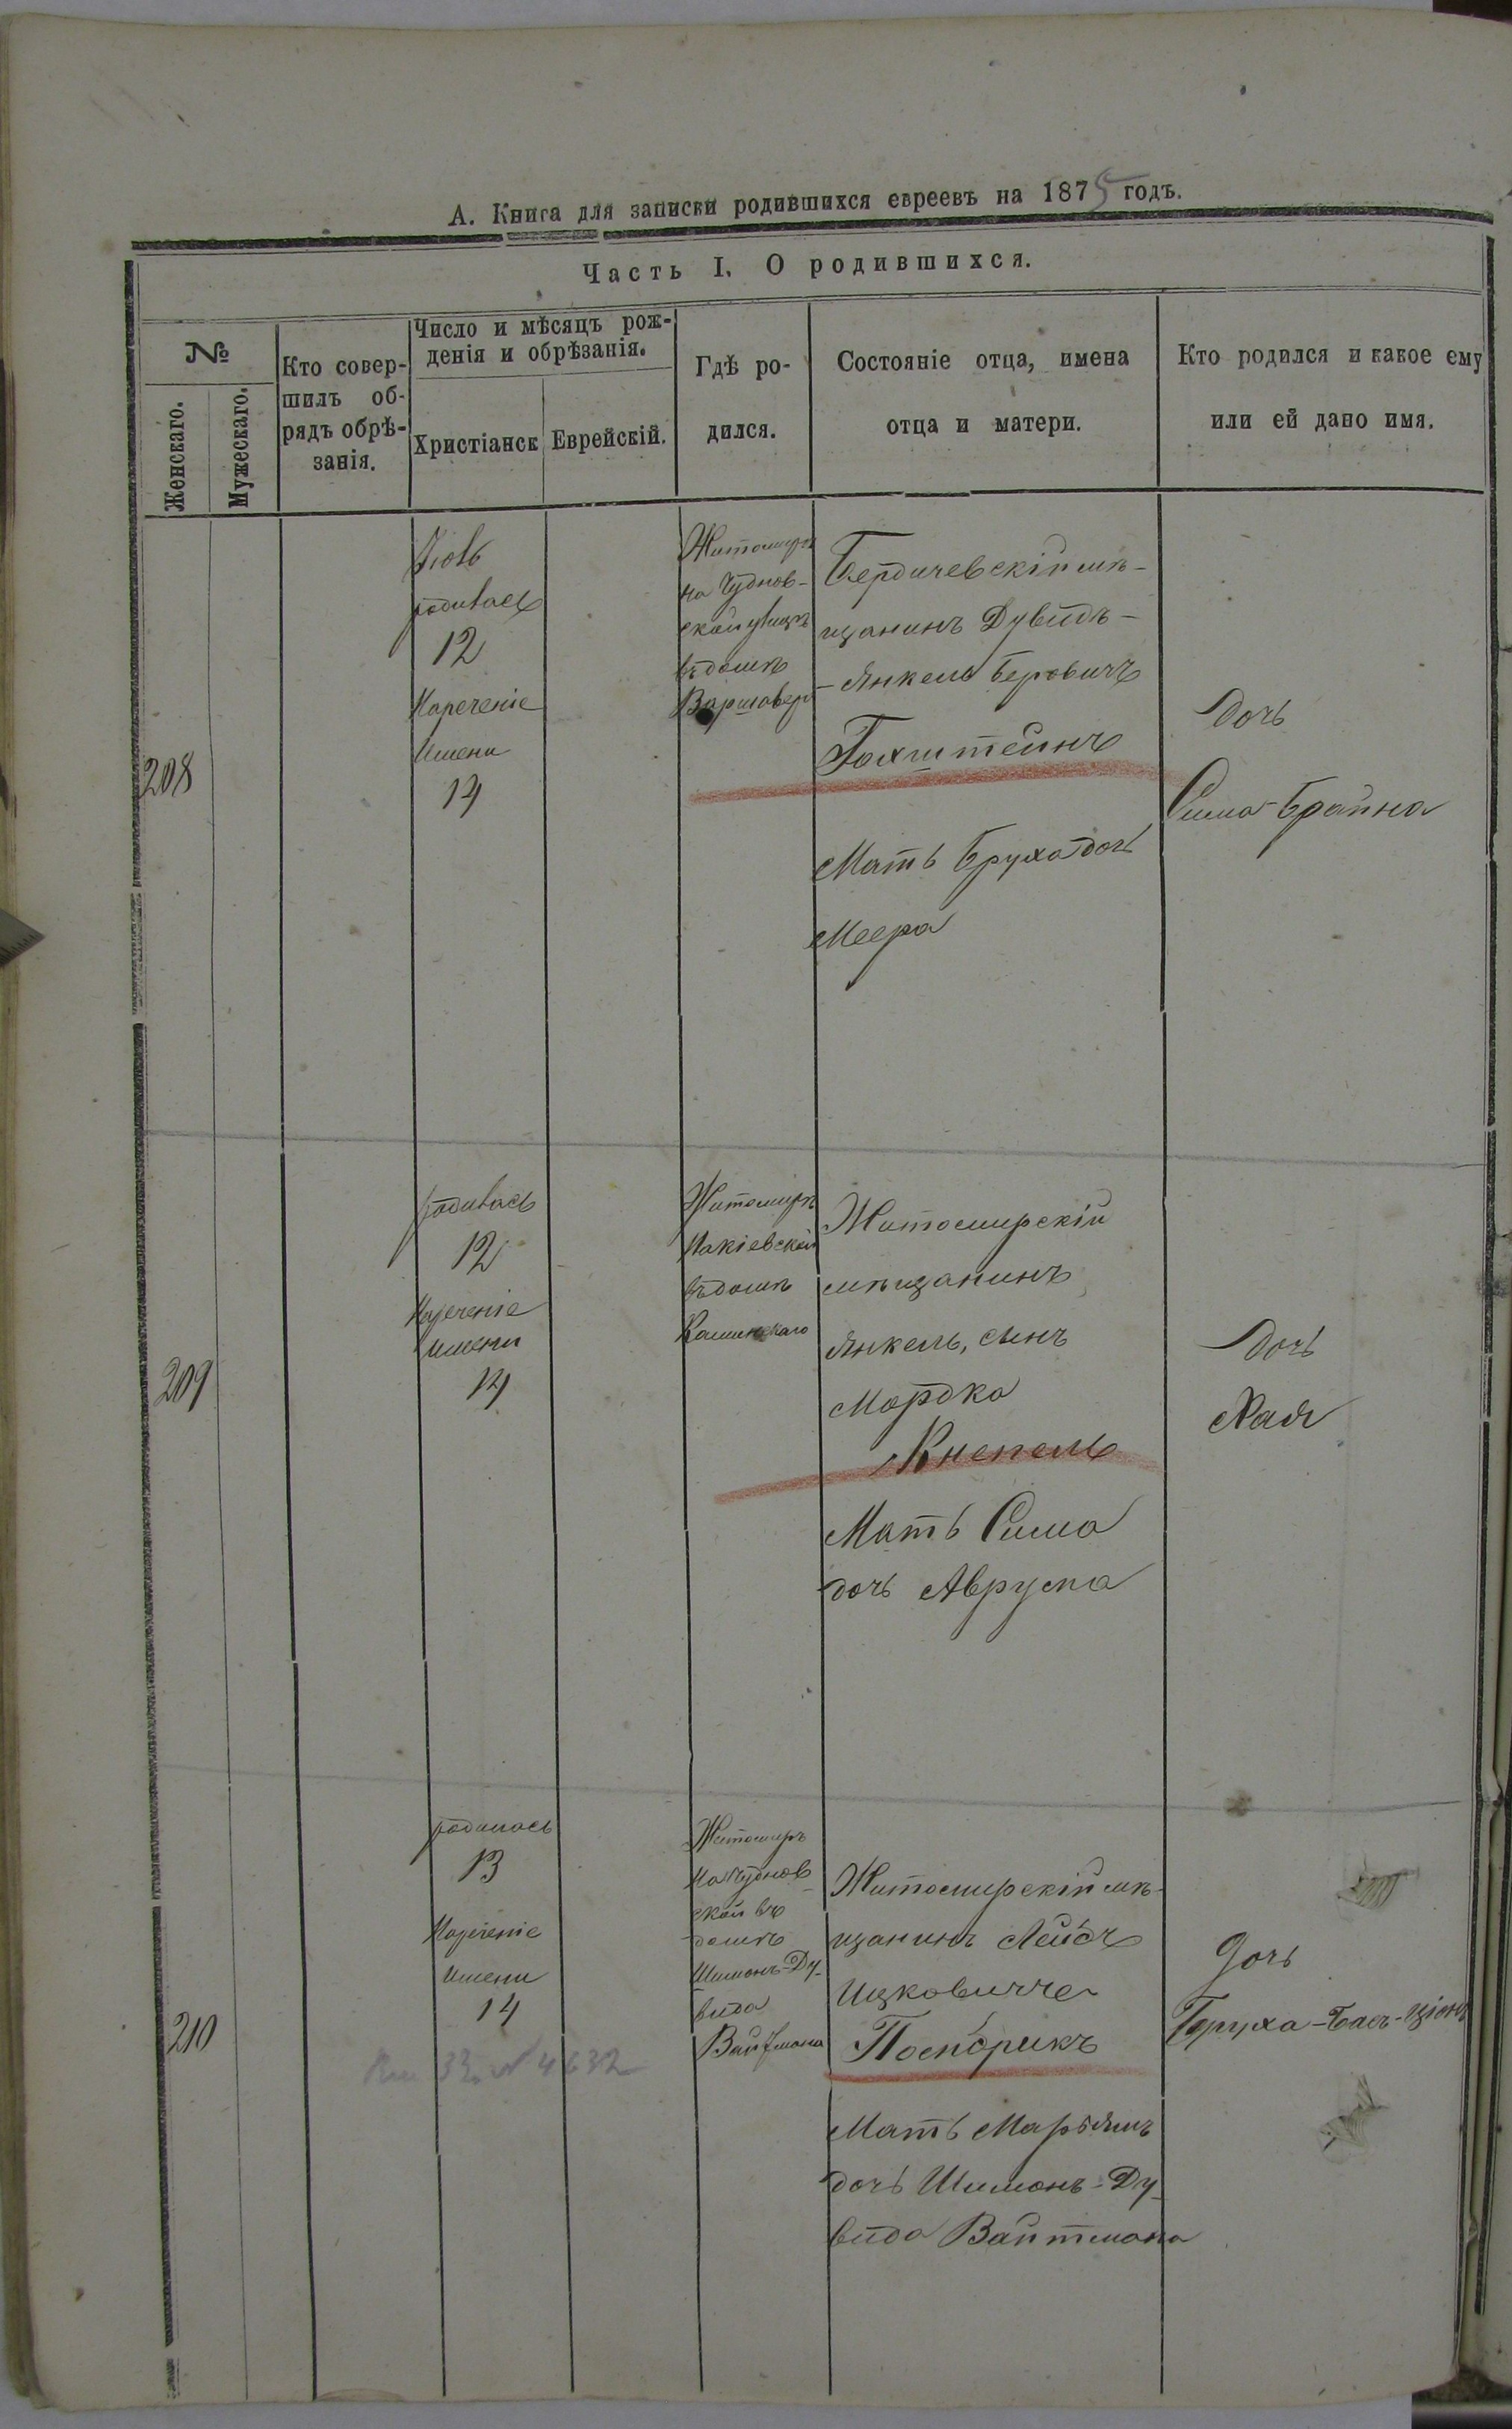 А. Книга для записки родившихся евреевъ на 1875 годъ.
Часть I. О родившихся.
№
Женскаго.
Мужескаго.
Кто совер-
шилъ об-
рядъ обрѣ-
занія.
Число и мѣсяцъ рож-
денія и обрѣзанія.
Христіанск
Еврейскій.
Гдѣ ро-
дился.
Состояніе отца, имена
отца и матери.
Кто родился и какое ему
или ей дано имя.
208
родилась
12
Нареченіе
Имени
14
Житомиръ
на Чуднов-
ской улицѣ
въ домѣ
Варшавер
Бердичевскій мѣ-
щанинъ Дувидъ-
-Янкель Беровичъ
Гохштейнъ
Мать Бруха дочь
Меера
Дочь
Сима-Брайна
209
родилась
12
Нареченіе
имени
14
Житомиръ
На Кіевской
въ домѣ
Каминскаго
Житомирскій
мѣщанинъ
Янкель, сынъ
Мордка
Кнепель
Мать Сима
дочь Аврума
Дочь
Хая
210
родилась
13
Нареченіе
Имени
14
Житомиръ
На Чуднов-
ской въ
домѣ
Шимонъ-Ду-
вида
Вайтмана
Житомирскій мѣ-
щанинъ Лейбъ
Ицковичъ
Поспорикъ
Мать Марьямъ
дочь Шимонъ-Ду-
вида Вайтмана
Дочь
Бруха-Басъ-Ціонъ
33. № 4632